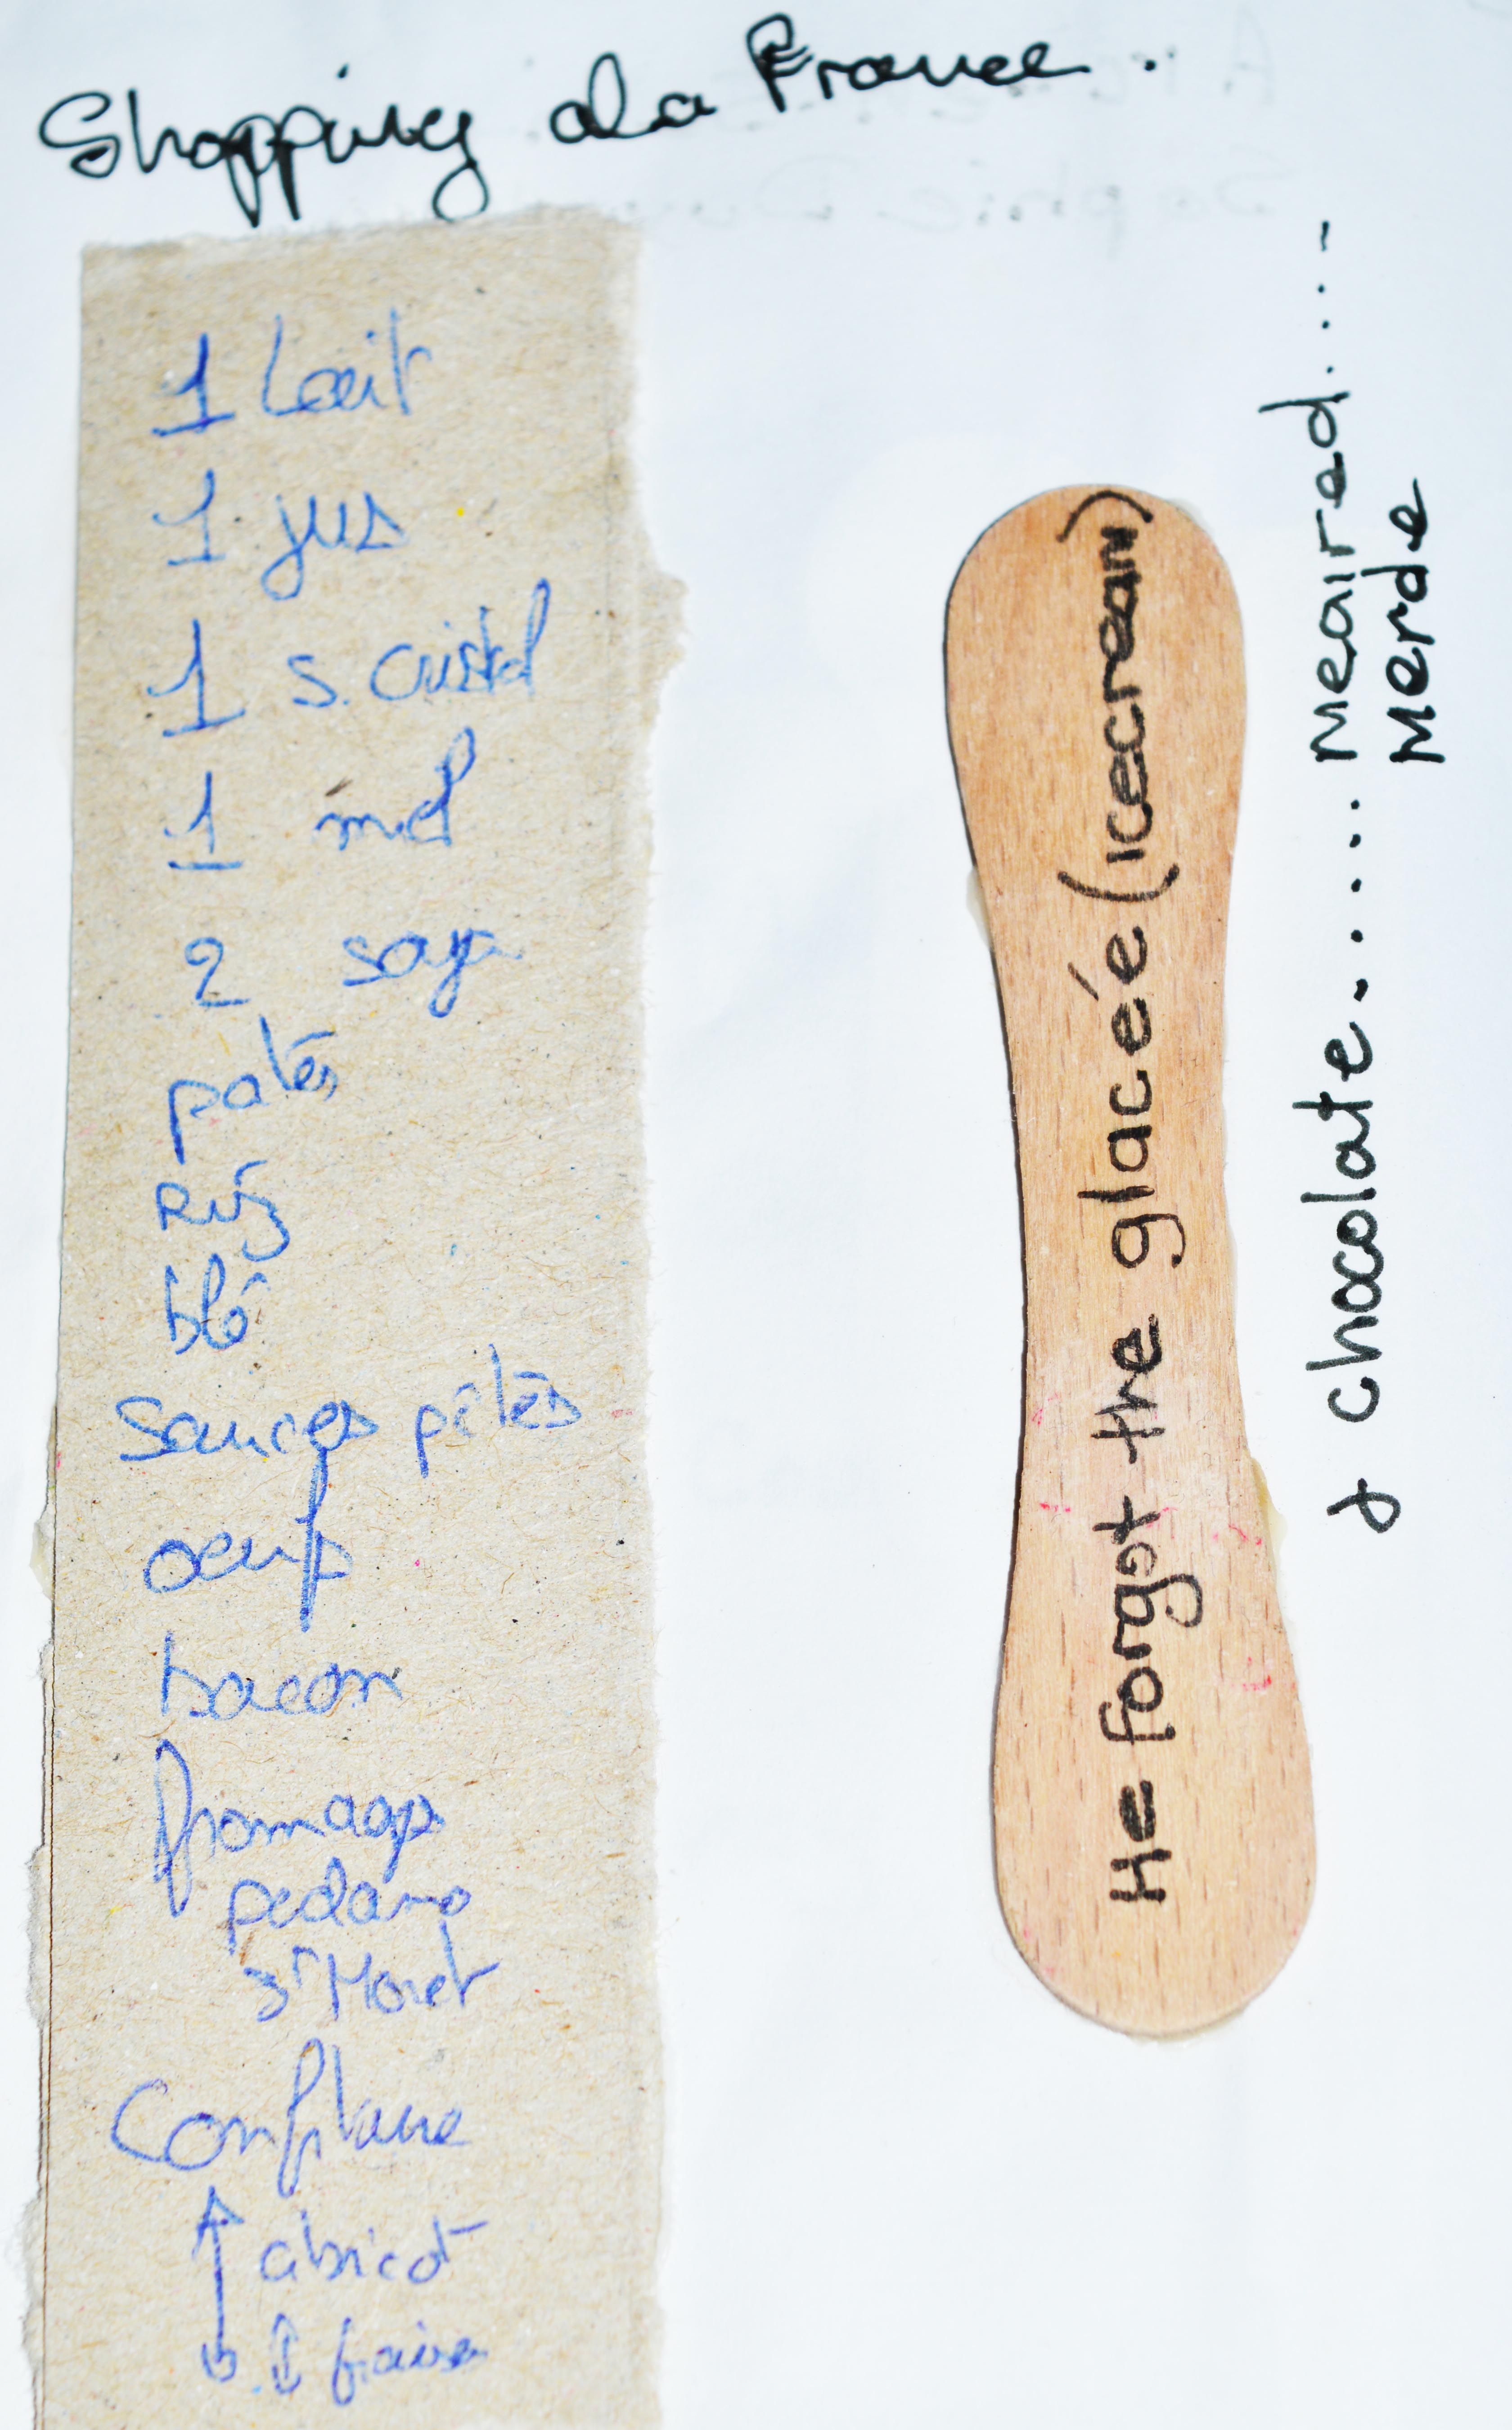 Shopping ala France.
1 Lait
1 jus
1 S. Cristal
1 mel
2 soya
patés
Riz
blé
Sauces pâtes
oeufs
bacon
fromage
padano
St Moret
Confiture
abricot
fraise
He forgot the glacée (icecream)
& chocolate...... meaired.....
merde